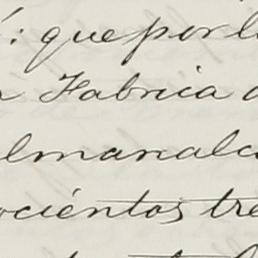 : que por l
Fabrica
lmanalc
ocientos tre